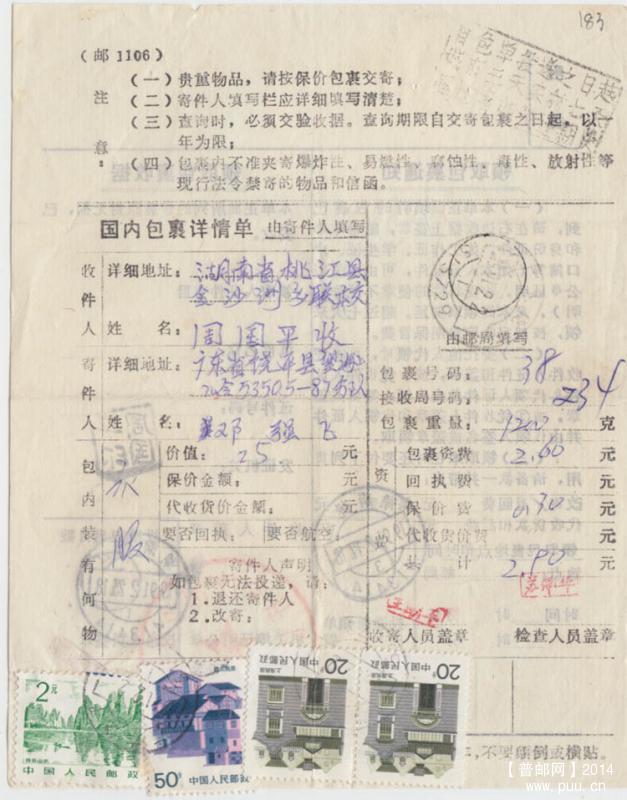 183
(邮1106)
注意:
(一)贵重物品,请按保价包裹交寄;
(二)寄件人填写栏应详细填写清楚;
(三)查询时,必须交验收据。查询期限自交寄包裹之日起,以一
年为限;
(四)包裹内不准夹寄爆炸性、易燃性、腐蚀性、毒性、放射性等
现行法令禁寄的物品和信函。
国内包裹详情单 由寄件人填写
收件人
详细地址:湖南省桃江县
金沙洲乡联校
姓名:周国平收
寄件人
详细地址:广东省饶平县
53505-87
姓名:强飞
由邮局填写
包裹号码:38
接收局号码:234
包裹重量:1200 克
包内装有何物
衣服
价值:25 元
保价金额: 元
代收货价金额: 元
要否回执: 要否航空:
寄件人声明
如包裹无法投递,请:
1.退还寄件人
2.改寄:
资费
包裹资费 2.60 元
回执费 元
保价费 0.30 元
代收货价费 元
共计 2.90 元
收寄人员盖章 检查人员盖章
2元
中国人民邮政
50分 中国人民邮政
20分
中国人民邮政
20分
中国人民邮政
不要颠倒或横贴。
【普邮网】2014
www.puu.cn